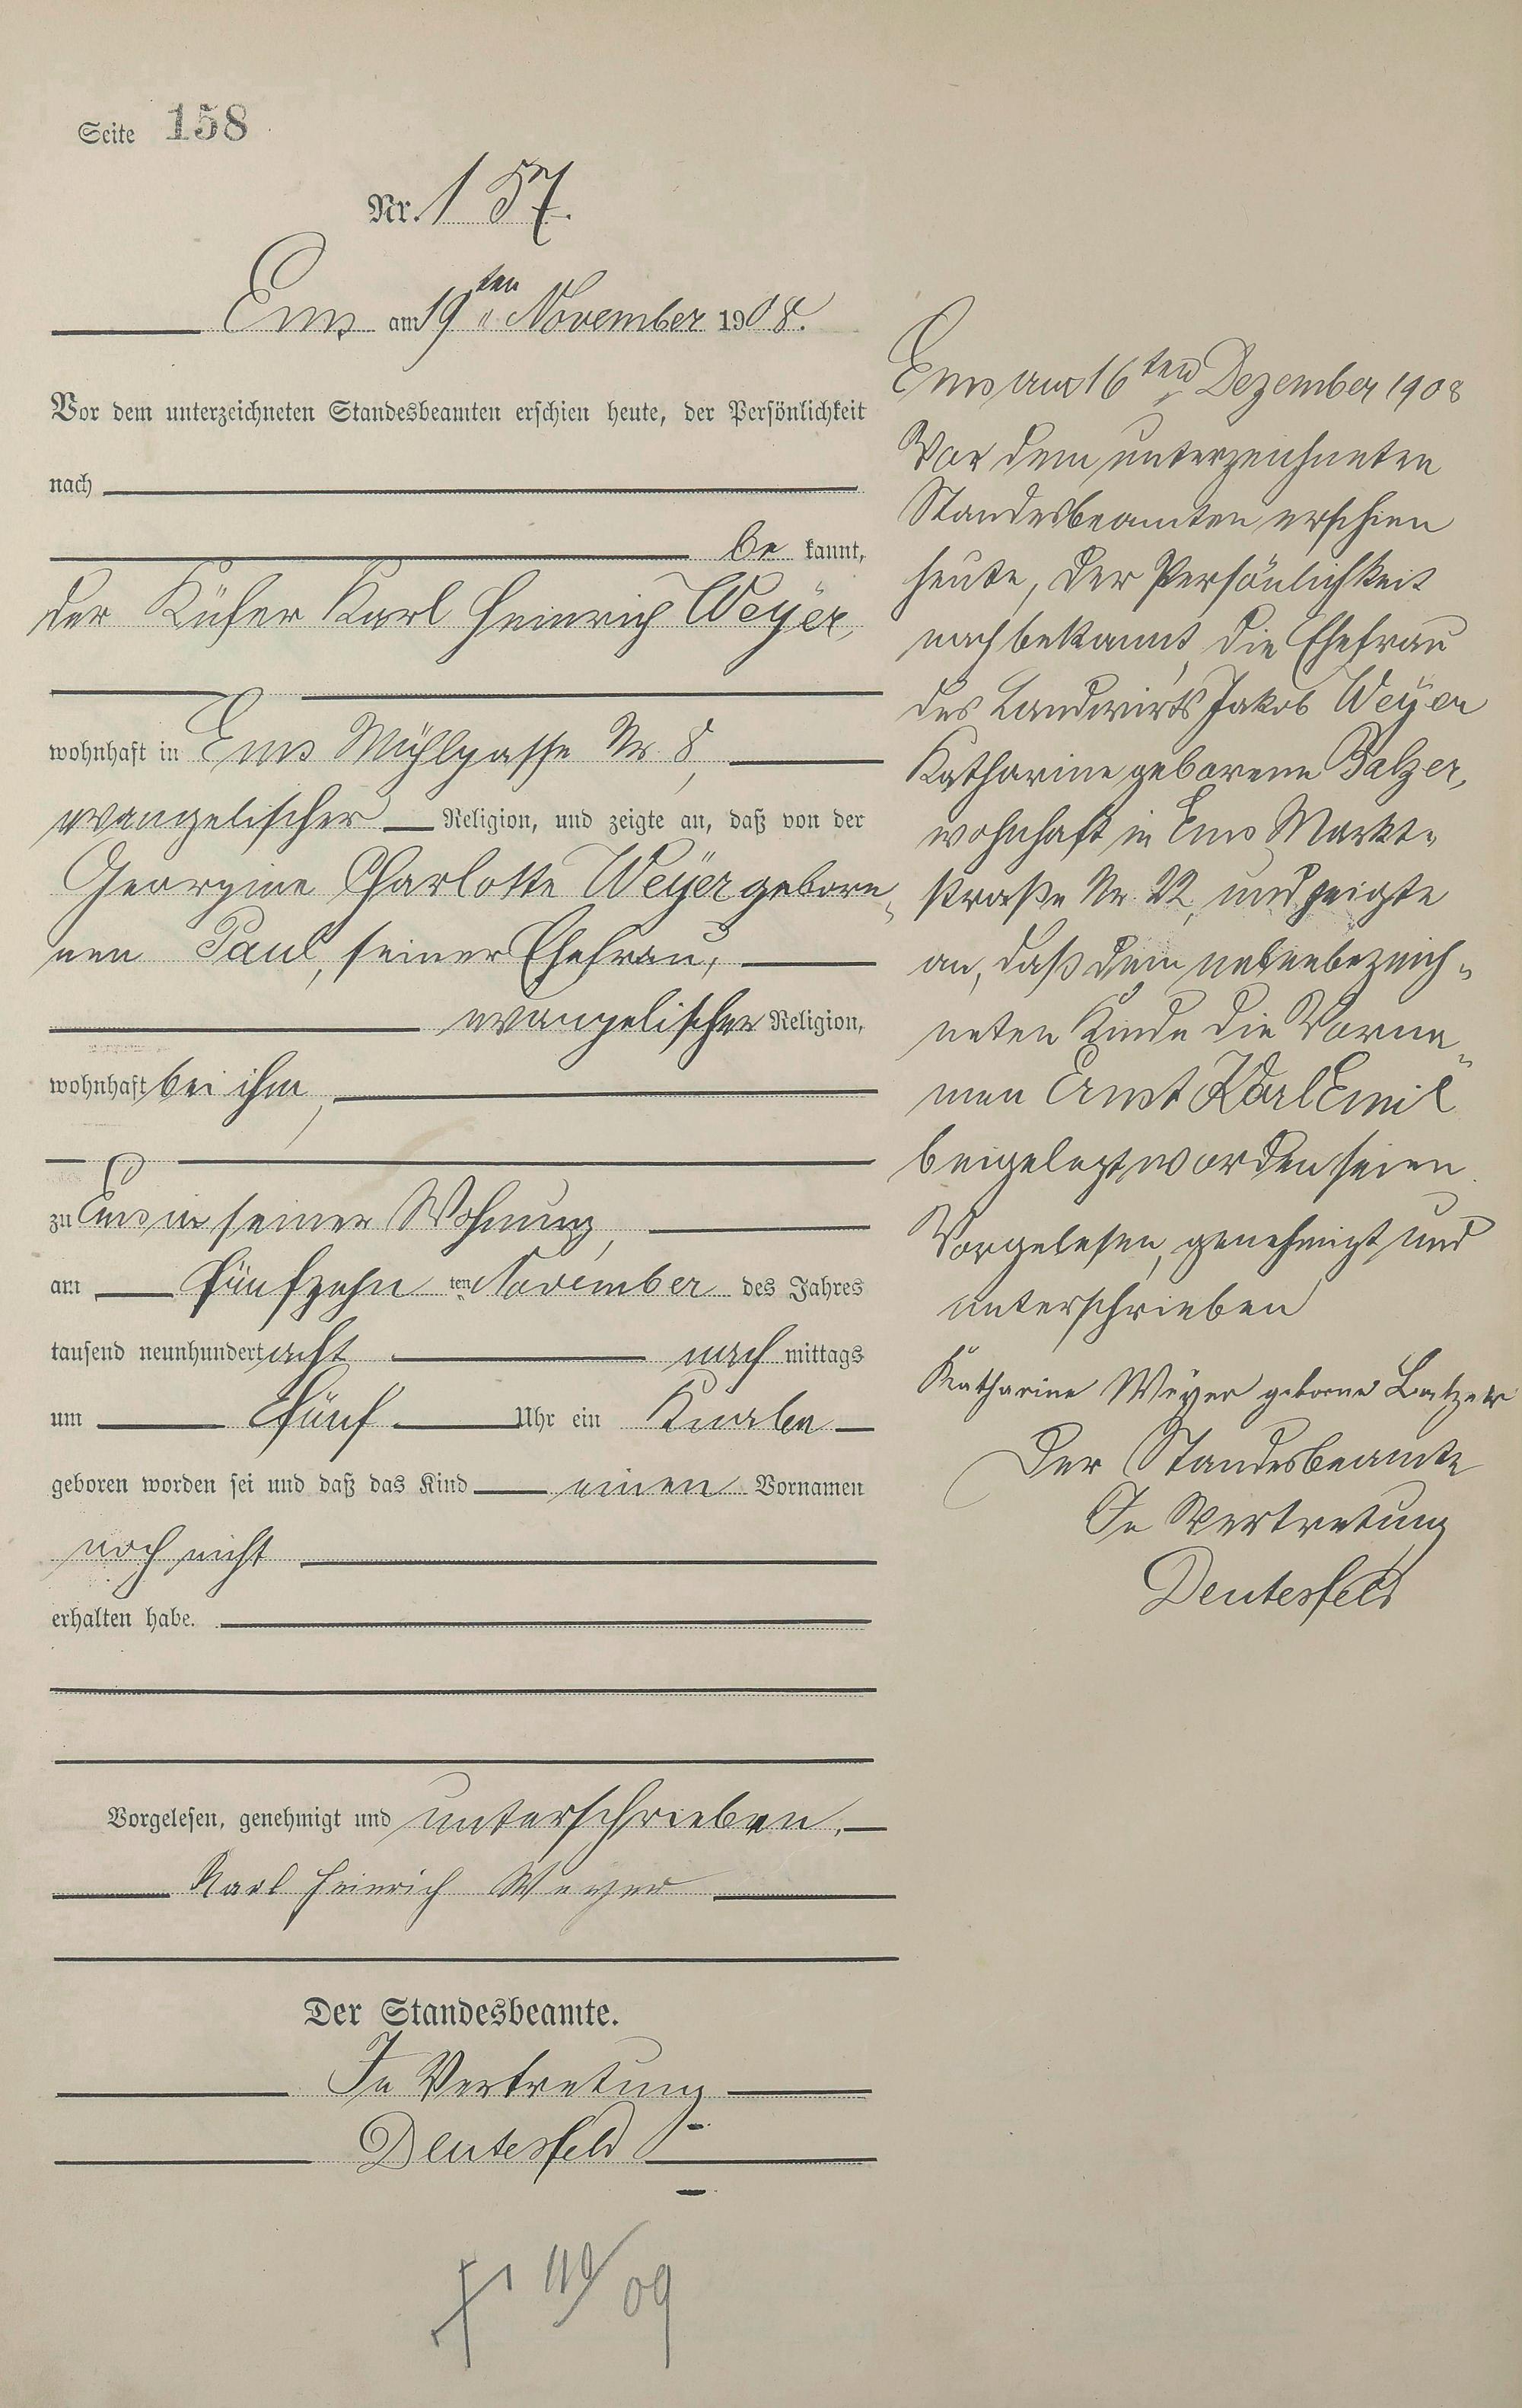 Seite 158
Nr. 157.
Ems am 19ten November 1908.
Vor dem unterzeichneten Standesbeamten erschien heute, der Persönlichkeit
nach
be kannt,
der Küfer Karl Heinrich Weyer,
wohnhaft in Ems Mühlgasse Nr. 8,
evangelischer Religion, und zeigte an, daß von der
Georgine Charlotte Weyer gebore-
nen Paul, seiner Ehefrau,
evangelischer Religion,
wohnhaft bei ihm,
zu Ems in seiner Wohnung,
am fünfzehn ten November des Jahres
tausend neunhundert acht nach mittags
um fünf Uhr ein Knabe
geboren worden sei und daß das Kind einen Vornamen
noch nicht
erhalten habe.
Vorgelesen, genehmigt und unterschrieben.
Karl Heinrich Weyer
Der Standesbeamte.
In Vertretung
Deutesfeld
09
Ems am 16ten Dezember 1908
Vor dem unterzeichneten
Standesbeamten erschien
heute, der Persönlichkeit
nach bekannt, die Ehefrau
des Landwirts Jakob Weyer
Katharine geborene Balzer,
wohnhaft in Ems Markt-
straße Nr. 22, und zeigte
an, daß dem nebenbezeich-
neten Kinde die Vorna-
men Ernst Karl Emil
beigelegt worden seien.
Vorgelesen, genehmigt und
unterschrieben
Katharine Weyer geborne Balzer
Der Standesbeamte
In Vertretung
Deutesfeld